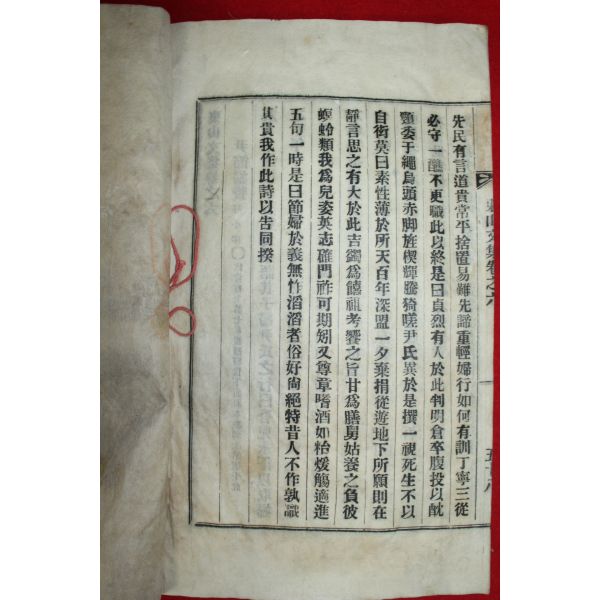 先民有言道貴常平捨置易難先諦重輕婦行如何有訓丁寧三從
必守一醮不更職此以終是曰貞烈有人於此判明倉卒腹投以酖
頸委于繩烏頭赤脚旌楔輝騰猗嗟尹氏異於是撰一視死生不以
自衒莫曰素性薄於所天百年深盟一夕棄捐從遊地下所願則在
靜言思之有大於此吉蠲爲饎祖考饗之旨甘爲膳舅姑養之負彼
螟蛉類我爲兒姿英志確門祚可期矧又尊章嗜酒如枱煖觴適進
五旬一時是曰節婦於義無怍滔滔者俗好尙絕特昔人不作孰識
其貴我作此詩以告同揆
山文集卷之六